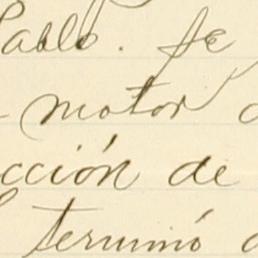 Pablo. Se
motor
cción de
terminó